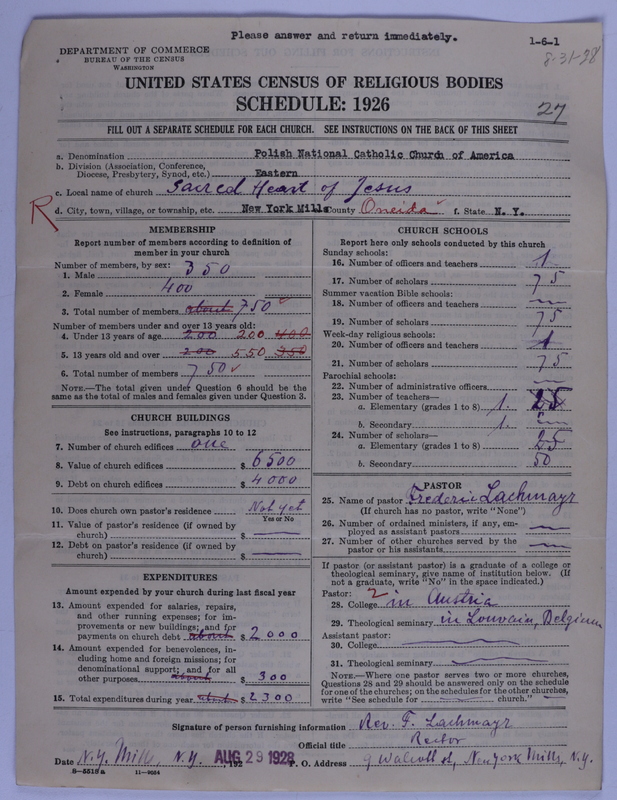 Please answer and return immediately.
1-6-1
8-31-28
DEPARTMENT OF COMMERCE
BUREAU OF THE CENSUS
WASHINGTON
UNITED STATES CENSUS OF RELIGIOUS BODIES
SCHEDULE: 1926
27
FILL OUT A SEPARATE SCHEDULE FOR EACH CHURCH. SEE INSTRUCTIONS ON THE BACK OF THIS SHEET
a. Denomination Polish National Catholic Church of America
b. Division (Association, Conference, Diocese, Presbytery, Synod, etc.) Eastern
c. Local name of church Sacred Heart of Jesus
R
d. City, town, village, or township, etc. New York Mills County Oneida f. State N. Y.
MEMBERSHIP
Report number of members according to definition of member in your church
Number of members, by sex:
1. Male 350
2. Female 400
3. Total number of members about 750
Number of members under and over 13 years old:
4. Under 13 years of age 200 200 400
5. 13 years old and over 200 550 350
6. Total number of members 750
NOTE.—The total given under Question 6 should be the same as the total of males and females given under Question 3.
CHURCH BUILDINGS
See instructions, paragraphs 10 to 12
7. Number of church edifices one
8. Value of church edifices $ 6500
9. Debt on church edifices $ 4000
10. Does church own pastor's residence Not yet
Yes or No
11. Value of pastor's residence (if owned by church) $
12. Debt on pastor's residence (if owned by church) $
EXPENDITURES
Amount expended by your church during last fiscal year
13. Amount expended for salaries, repairs, and other running expenses; for improvements or new buildings; and for payments on church debt about $ 2000
14. Amount expended for benevolences, including home and foreign missions; for denominational support; and for all other purposes about $ 300
15. Total expenditures during year about $ 2300
CHURCH SCHOOLS
Report here only schools conducted by this church
Sunday schools:
16. Number of officers and teachers 1
17. Number of scholars 75
Summer vacation Bible schools:
18. Number of officers and teachers
19. Number of scholars 75
Week-day religious schools:
20. Number of officers and teachers 1
21. Number of scholars 75
Parochial schools:
22. Number of administrative officers
23. Number of teachers—
a. Elementary (grades 1 to 8) 1. 25
b. Secondary 1.
24. Number of scholars—
a. Elementary (grades 1 to 8) 25
b. Secondary 50
PASTOR
25. Name of pastor Frederic Lachmayr
(If church has no pastor, write "None")
26. Number of ordained ministers, if any, employed as assistant pastors
27. Number of other churches served by the pastor or his assistants
If pastor (or assistant pastor) is a graduate of a college or theological seminary, give name of institution below. (If not a graduate, write "No" in the space indicated.)
Pastor: 2
28. College in Austria
29. Theological seminary in Louvain, Belgium
Assistant pastor:
30. College
31. Theological seminary
NOTE.—Where one pastor serves two or more churches, Questions 28 and 29 should be answered only on the schedule for one of the churches; on the schedules for the other churches, write "See schedule for church."
Signature of person furnishing information Rev. F. Lachmayr
Official title Rector
Date N.Y. Mills, N.Y. AUG 29 1928, 192 P. O. Address 9 Walcott st, New York Mills, N.Y.
8—5518a 11—9054